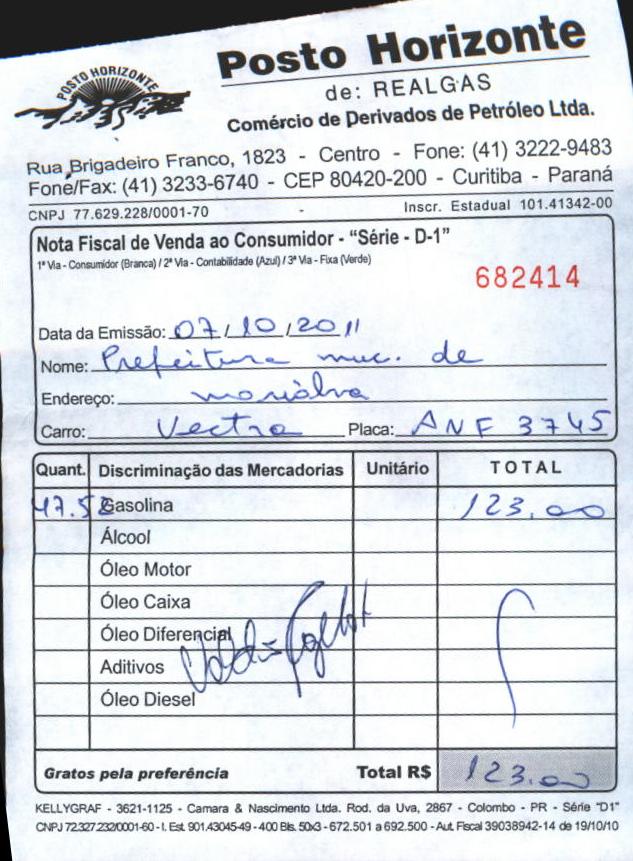 POSTO HORIZONTE
Posto Horizonte
de: REALGAS
Comércio de Derivados de Petróleo Ltda.
Rua Brigadeiro Franco, 1823 - Centro - Fone: (41) 3222-9483
Fone/Fax: (41) 3233-6740 - CEP 80420-200 - Curitiba - Paraná
CNPJ 77.629.228/0001-70 Inscr. Estadual 101.41342-00
Nota Fiscal de Venda ao Consumidor - "Série - D-1"
1ª Via - Consumidor (Branca) / 2ª Via - Contabilidade (Azul) / 3ª Via - Fixa (Verde)
682414
Data da Emissão: 07/10/2011
Nome: Prefeitura muc. de
Endereço: marialva
Carro: Vectra Placa: ANF 3745
Quant. Discriminação das Mercadorias Unitário TOTAL
47.52 Gasolina 123,00
Álcool
Óleo Motor
Óleo Caixa
Óleo Diferencial
Aditivos
Óleo Diesel
Gratos pela preferência Total R$ 123.00
KELLYGRAF - 3621-1125 - Camara & Nascimento Ltda. Rod. da Uva, 2867 - Colombo - PR - Série "D1"
CNPJ 72.327.232/0001-60 - I. Est. 901.43045-49 - 400 Bls. 50x3 - 672.501 a 692.500 - Aut. Fiscal 39038942-14 de 19/10/10